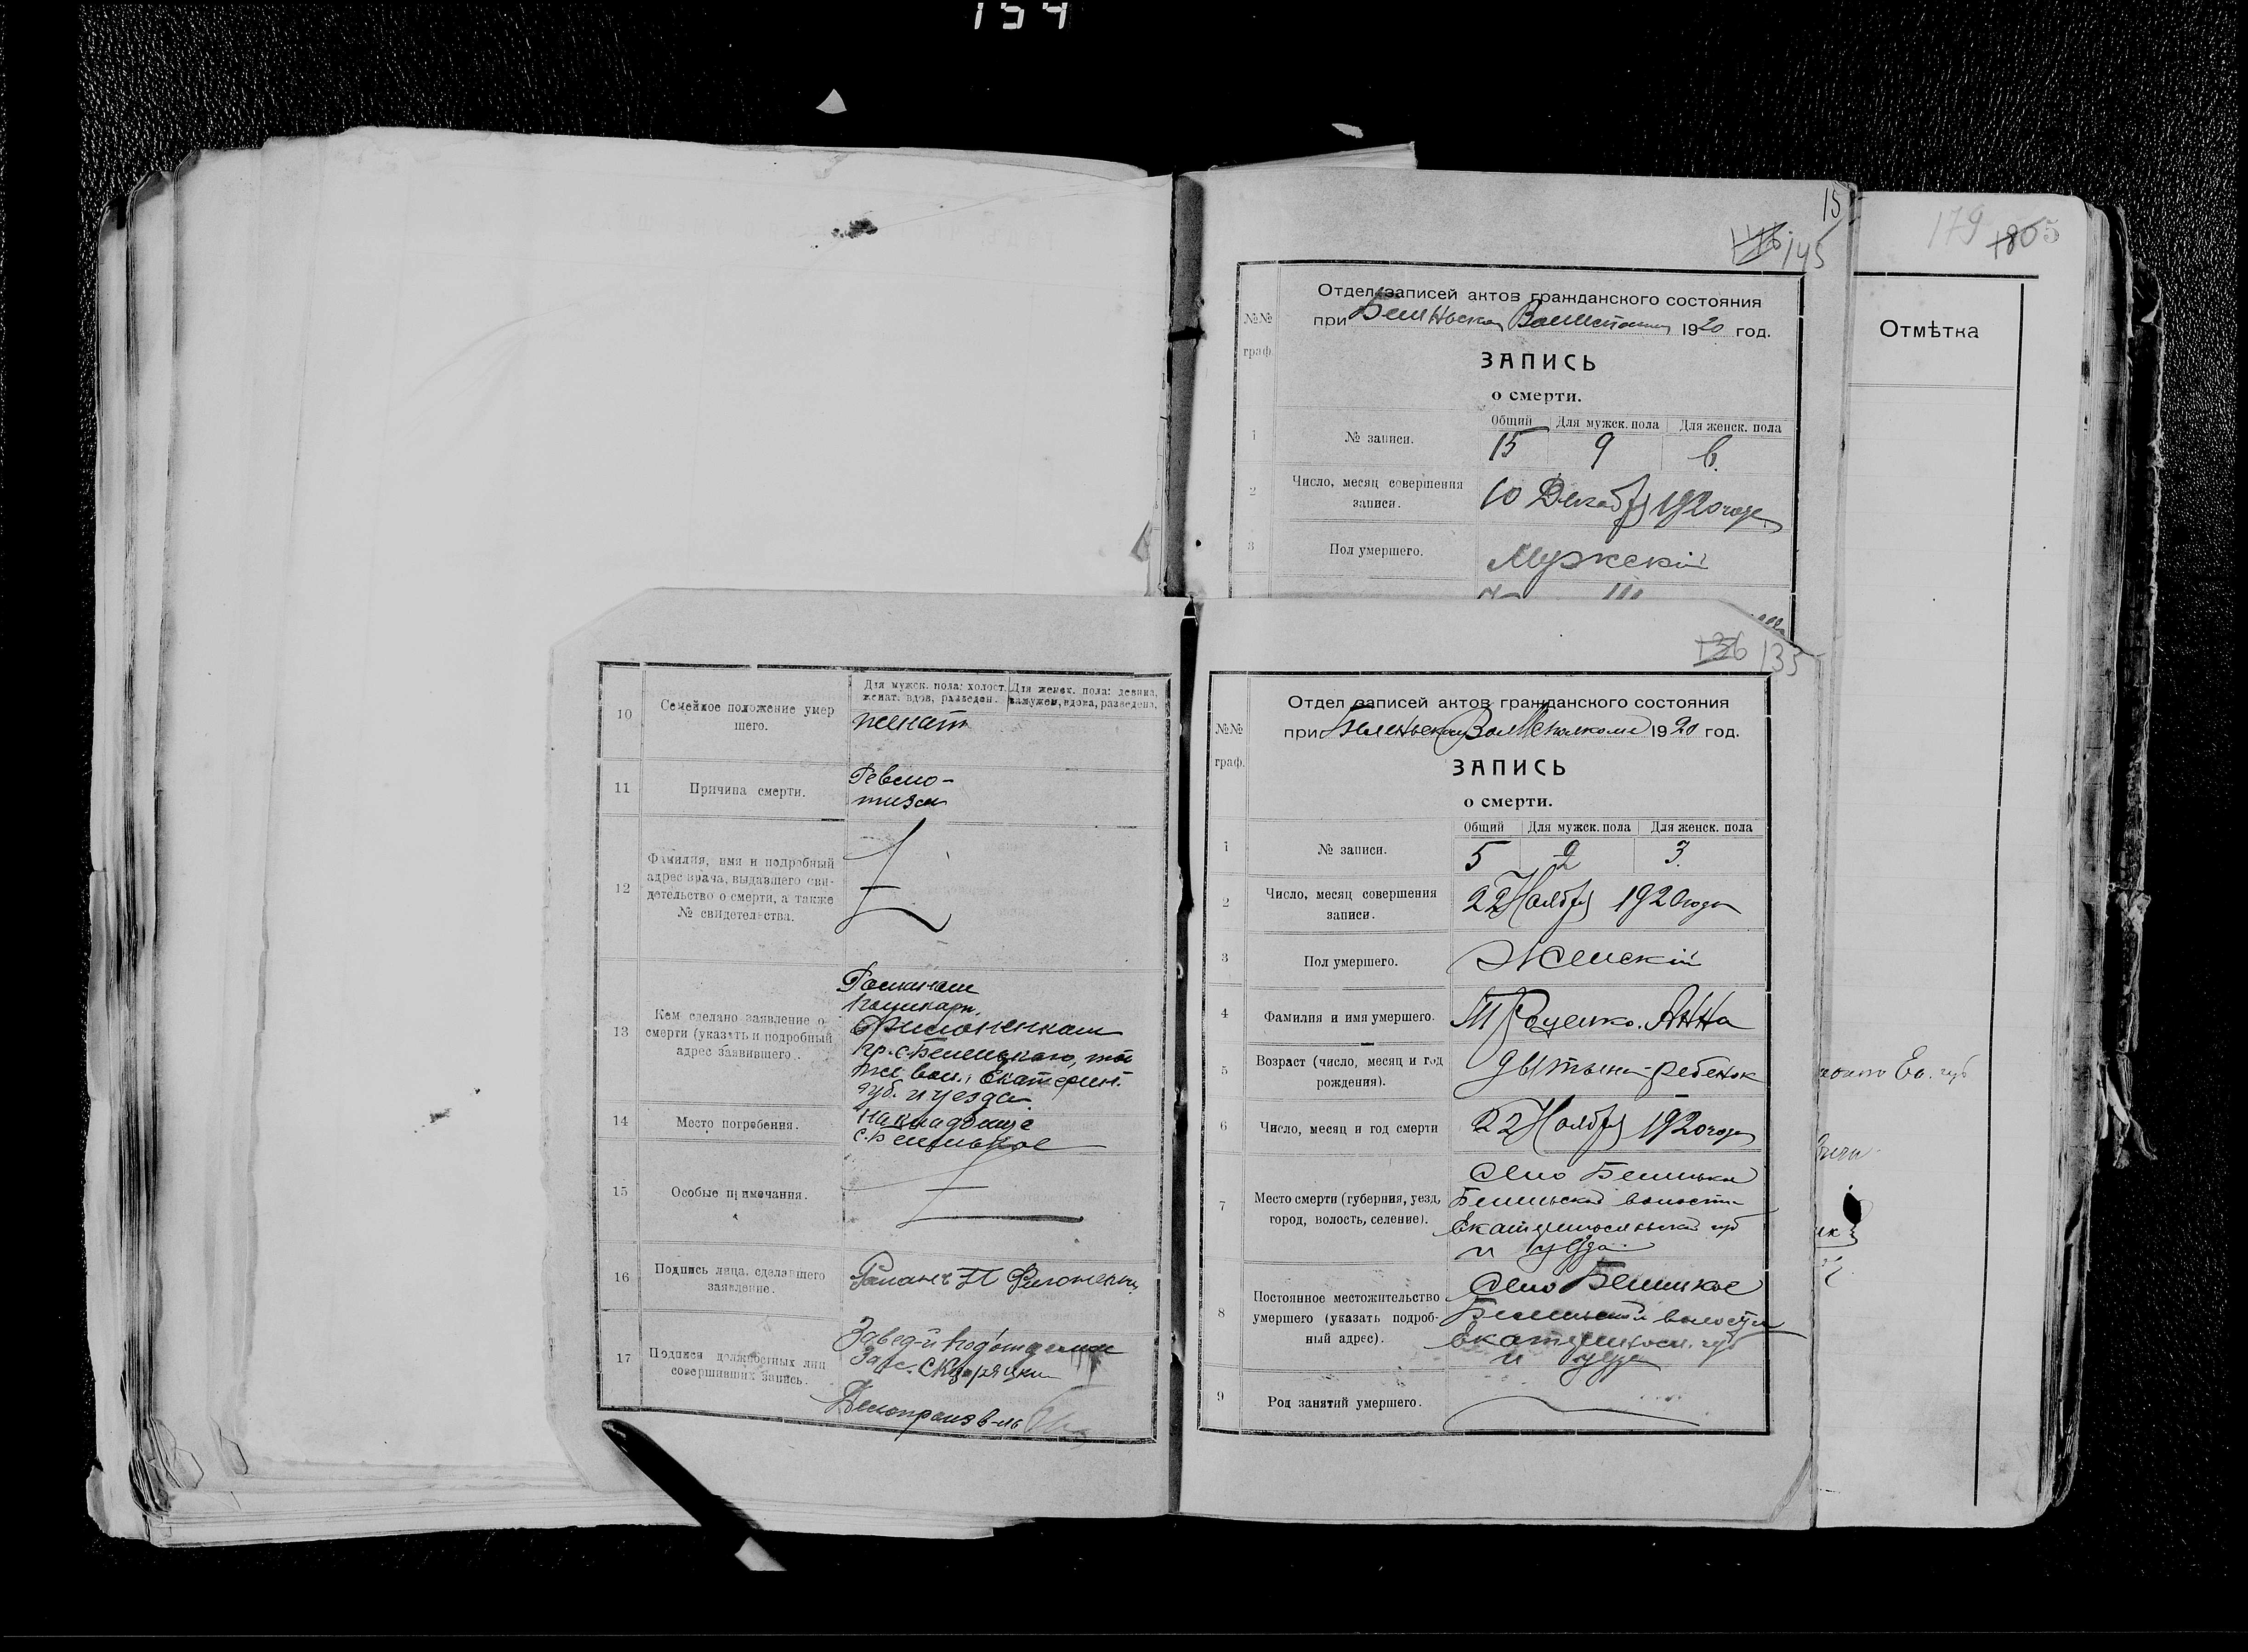 154
15
146 145
179 1805
Отдел записей актов гражданского состояния
при 1920 год.
№№ граф.
ЗАПИСЬ
о смерти.
Общий Для мужск. пола Для женск. пола
1 № записи. 15 9 6.
2 Число, месяц совершения записи. 10 Декабря 1920 года
3 Пол умершего. Мужскій
Отмѣтка
136 135
10 Семейное положение умер шего.
Для мужск. пола: холост, женат. вдов, разведен. Для женск. пола: девица, замужем, вдова, разведена.
женат
11 Причина смерти.
Ревмо-
тизм
12 Фамилия, имя и подробный
адрес врача, выдавшего сви-
детельство о смерти, а также
№ свидетельства.
13 Кем сделано заявление о
смерти (указать и подробный
адрес заявившего).
Романом
Филоненком
гр. с. Беленького, той
же вол., Екатерин.
губ. и уезда
14 Место погребения.
На кладбище
с. Беленькое
15 Особые примечания.
16 Подпись лица, сделавшего
заявление.
Романъ П Филоненко
17 Подписи должностных лиц
совершивших запись.
Завед-й подотделом
Загс.
Делопроизв-ль
Отдел записей актов гражданского состояния
при Беленьском Волисполкоме 1920 год.
№№ граф.
ЗАПИСЬ
о смерти.
Общий Для мужск. пола Для женск. пола
1 № записи. 5 2 3.
2 Число, месяц совершения записи. 22 Ноября 1920 года
3 Пол умершего. Женскій
4 Фамилия и имя умершего. Троценко. Анна
5 Возраст (число, месяц и год рождения). дытына-ребенок
6 Число, месяц и год смерти 22 Ноября 1920 года
7 Место смерти (губерния, уезд, город, волость, селение).
Село Беленька
Беленьской волости
Екатеринославской губ
и уезда.
8 Постоянное местожительство
умершего (указать подроб-
ный адрес).
Село Беленькое
Беленьской волости
Екатериносл. губ
и уезда
9 Род занятий умершего.